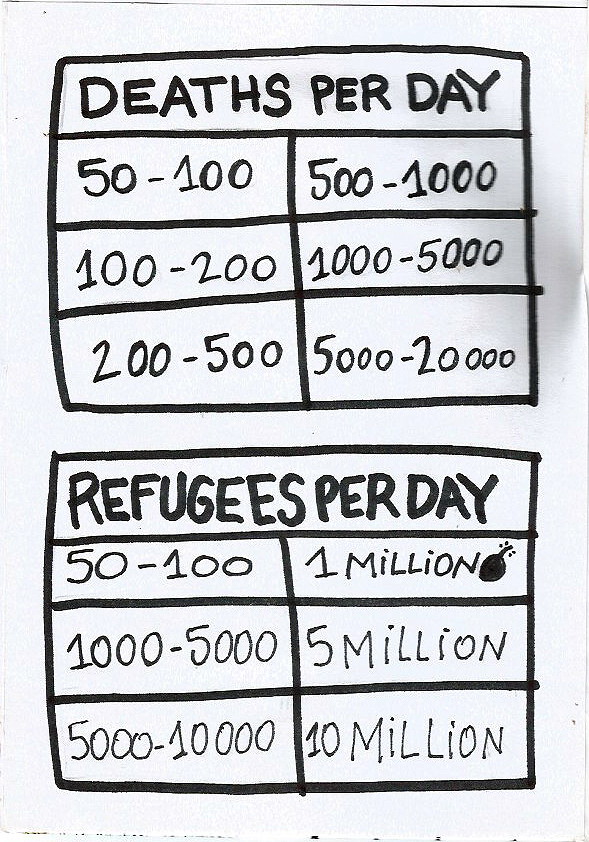 DEATHS PER DAY
50-100 500-1000
100-200 1000-5000
200-500 5000-20000
REFUGEES PER DAY
50-100 1 MiLLiON
1000-5000 5 MiLLiON
5000-10000 10 MiLLiON